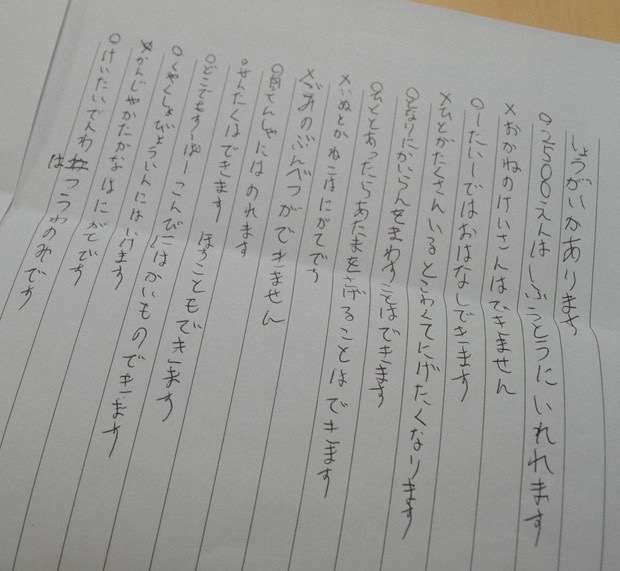 しょうがいかあります
○2500えんは しぶうとうにいれれます
×おかねのけいさんはできません
○1たい1ではおはなしできます
×ひとがたくさんいるとこわくてにげたくなります
○となりにかいらんをまわすことはできます
○ひととあったらあたまをさげることはできます
×いぬとかねこはにがてです
×ごみのぶんべつができません
○自てんしゃにはのれます
○せんたくはできます ほすこともできます
○どこでもすーぱー こんびにはかいものできます
○くやくしょびょういんにはいけます
×かんじやかたかなはにがてです
○けいたいでんわは つうわのみです